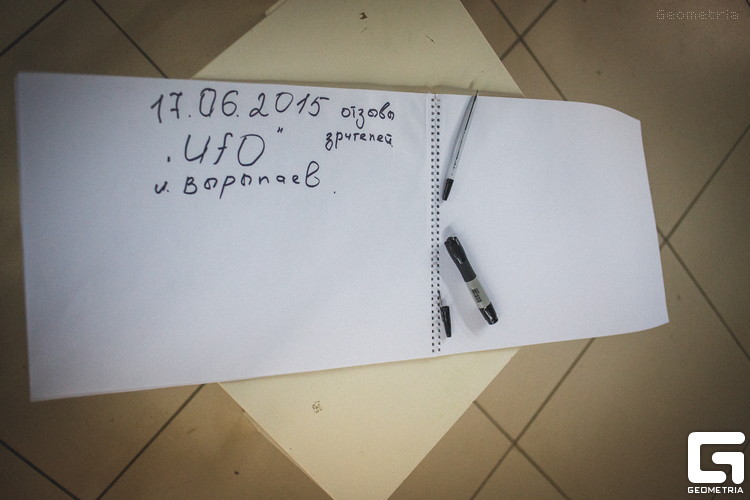 Geometria
17.06.2015 отзывы
зрителей
"UFO"
и. Вырыпаев.
GEOMETRIA